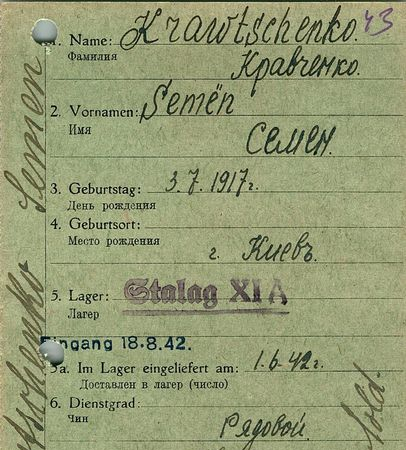 43
1. Name: Krawtschenko.
Фамилия
Кравченко.
2. Vornamen: Semën
Имя
Семен.
3. Geburtstag: 3.7.1917г.
День рождения
4. Geburtsort:
Место рождения
г. Киевъ.
5. Lager: Stalag XI A
Лагер
Eingang 18.8.42.
5a. Im Lager eingeliefert am: 1.6.42г.
Доставлен в лагер (число)
6. Dienstgrad:
Чин
Рядовой.
Sold.
tschenko Semen